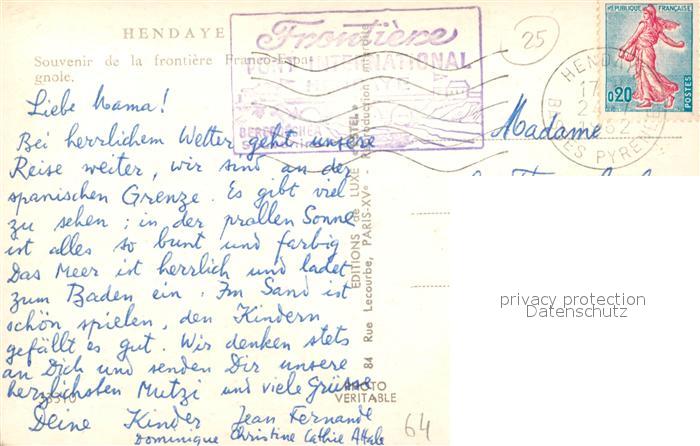 HENDAYE
Souvenir de la frontière Franco-Espa-
gnole.
Liebe Mama!
Bei herrlichem Wetter geht unsere
Reise weiter, wir sind an der
spanischen Grenze. Es gibt viel
zu sehen; in der prallen Sonne
ist alles so bunt und farbig
Das Meer ist herrlich und ladet
zum Baden ein. Im Sand ist
schön spielen, den Kindern
gefällt es gut. Wir denken stets
an Dich und senden Dir unsere
herzlichsten Mutzi und viele Grüsse
Deine Kinder Jean Fernande
Dominique Christine Cathie
Frontière
PONT INTERNATIONAL
EDITIONS de LUXE
84 Rue Lecourbe, PARIS-XVe - Reproduction
PHOTO
VERITABLE
64
25
HENDAYE
17
BSES PYRENEES
REPUBLIQUE FRANÇAISE
0,20
POSTES
Madame
privacy protection
Datenschutz